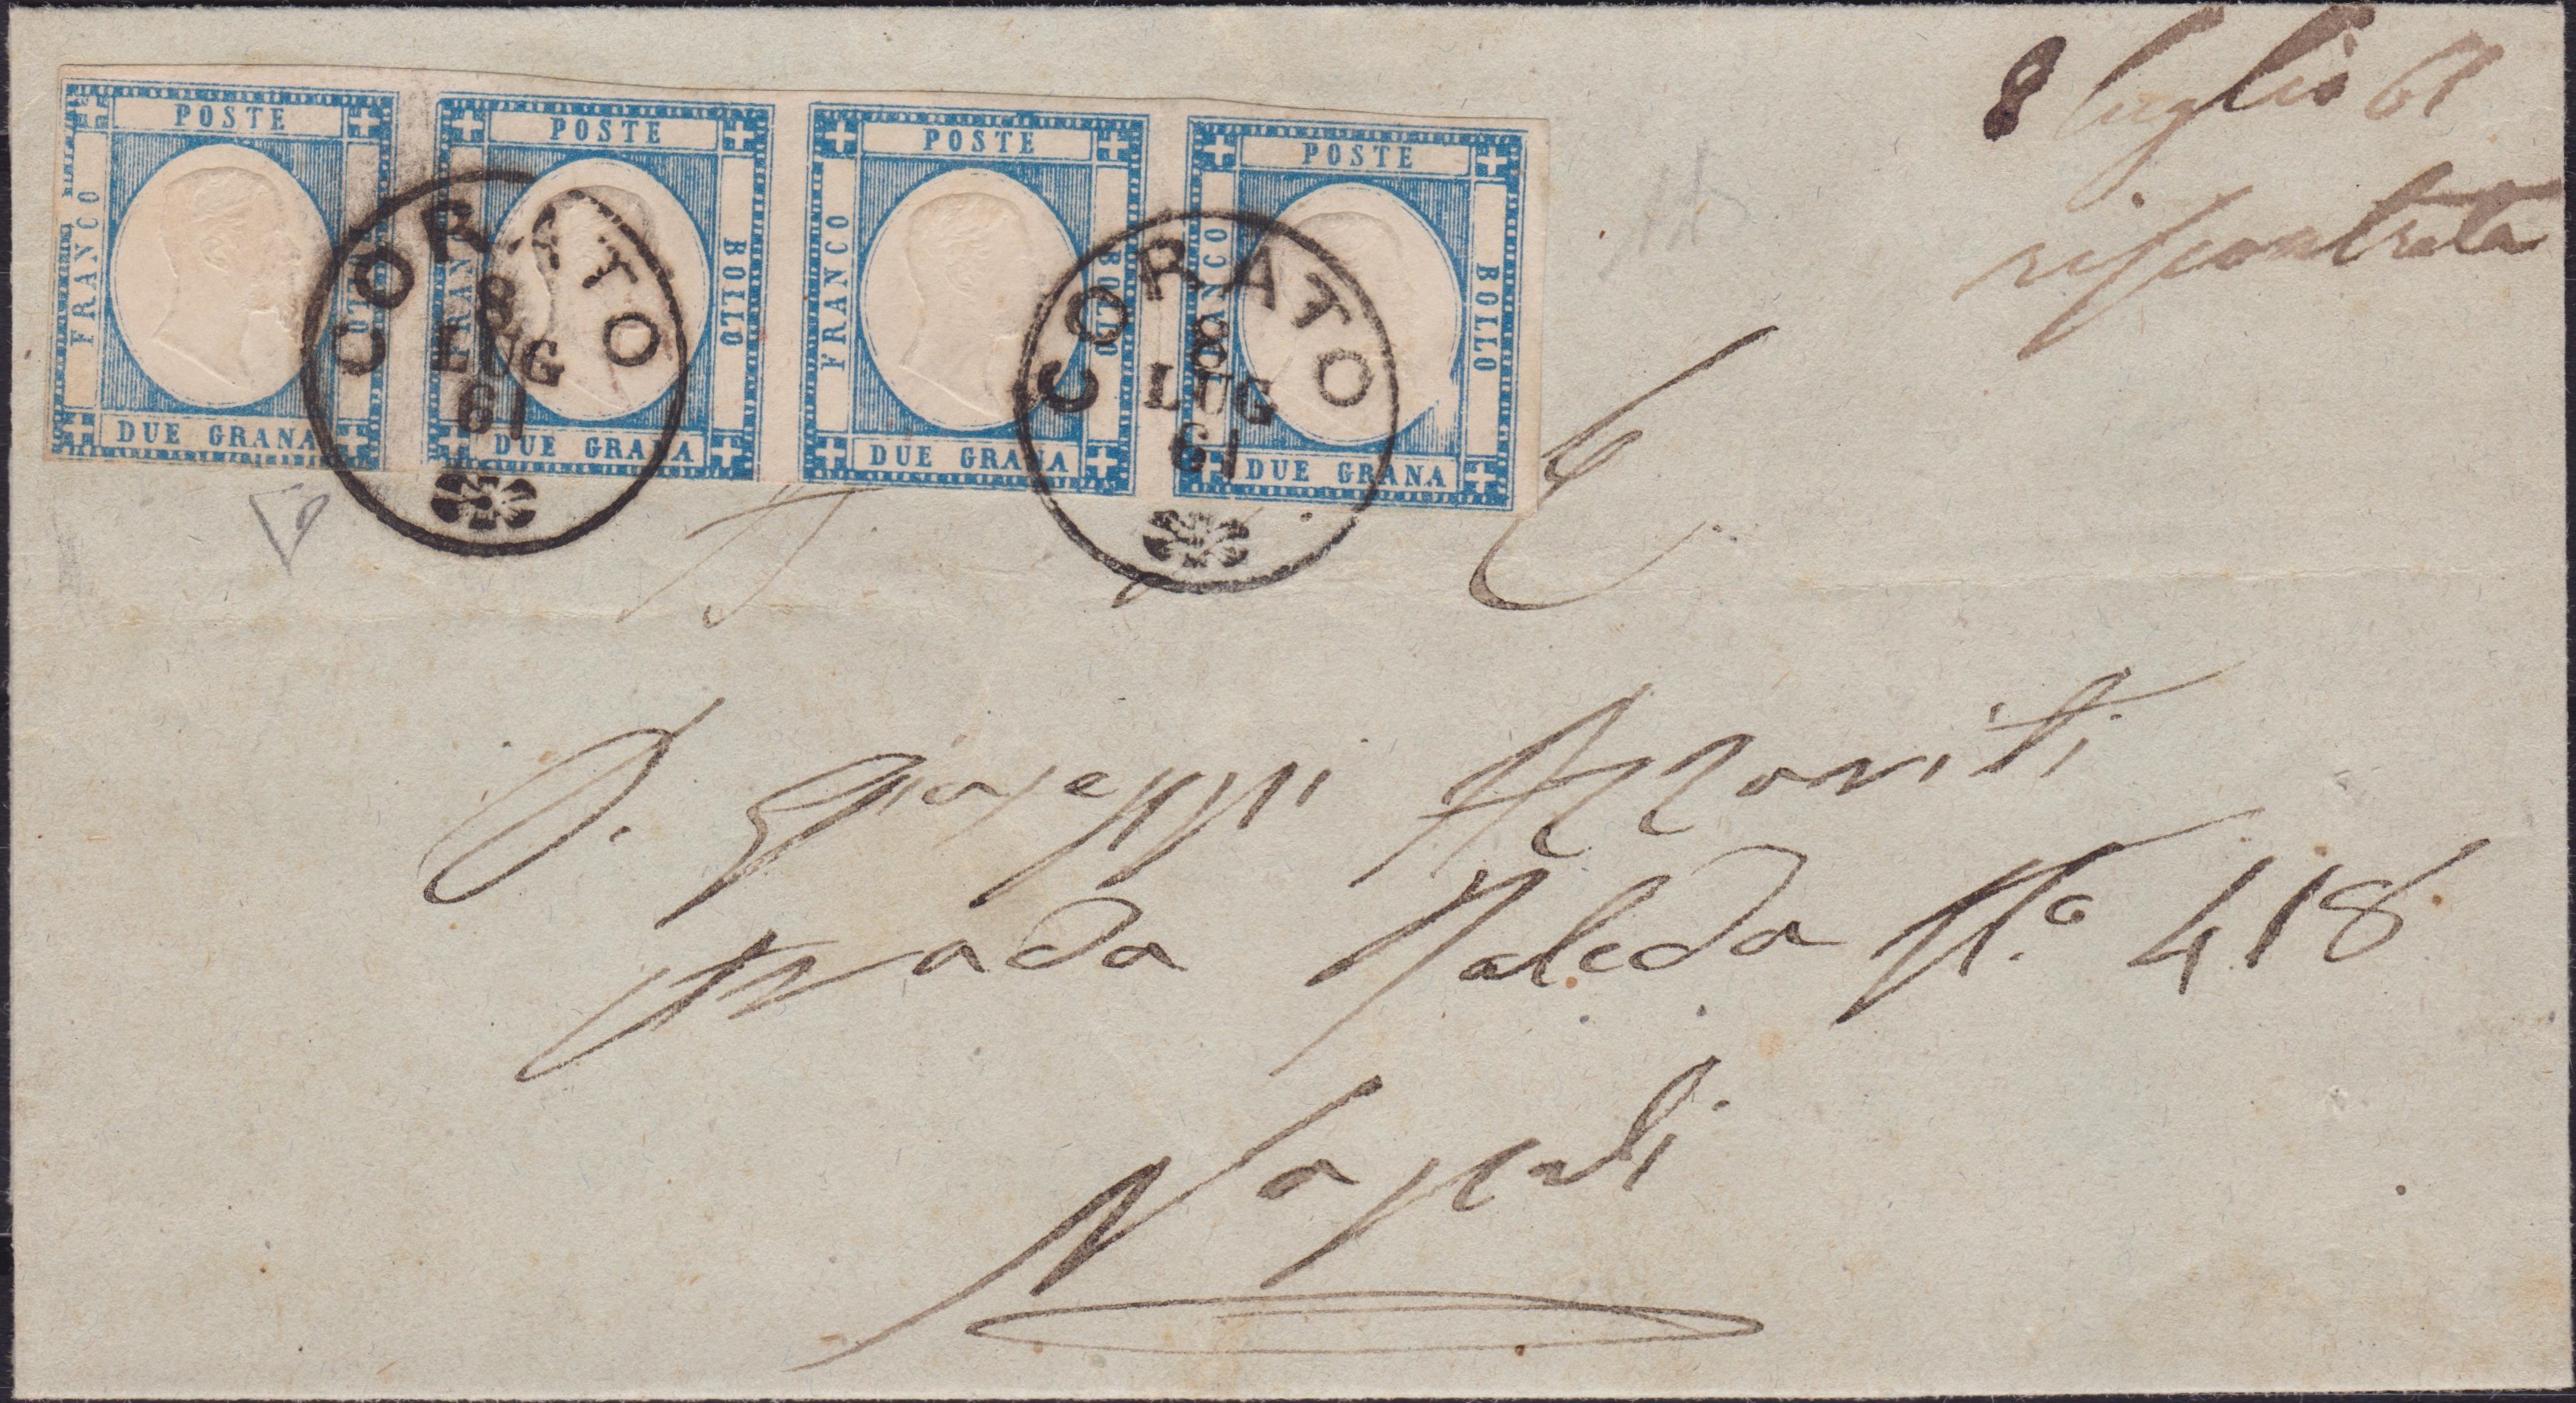 POSTE
FRANCO
BOLLO
DUE GRANA
POSTE
FRANCO
BOLLO
DUE GRANA
POSTE
FRANCO
BOLLO
DUE GRANA
POSTE
FRANCO
BOLLO
DUE GRANA
CORATO
8
LUG
61
CORATO
8
LUG
61
8 luglio 61
riscontrata
D. Giuseppi
strada Toledo N.o 418
Napoli